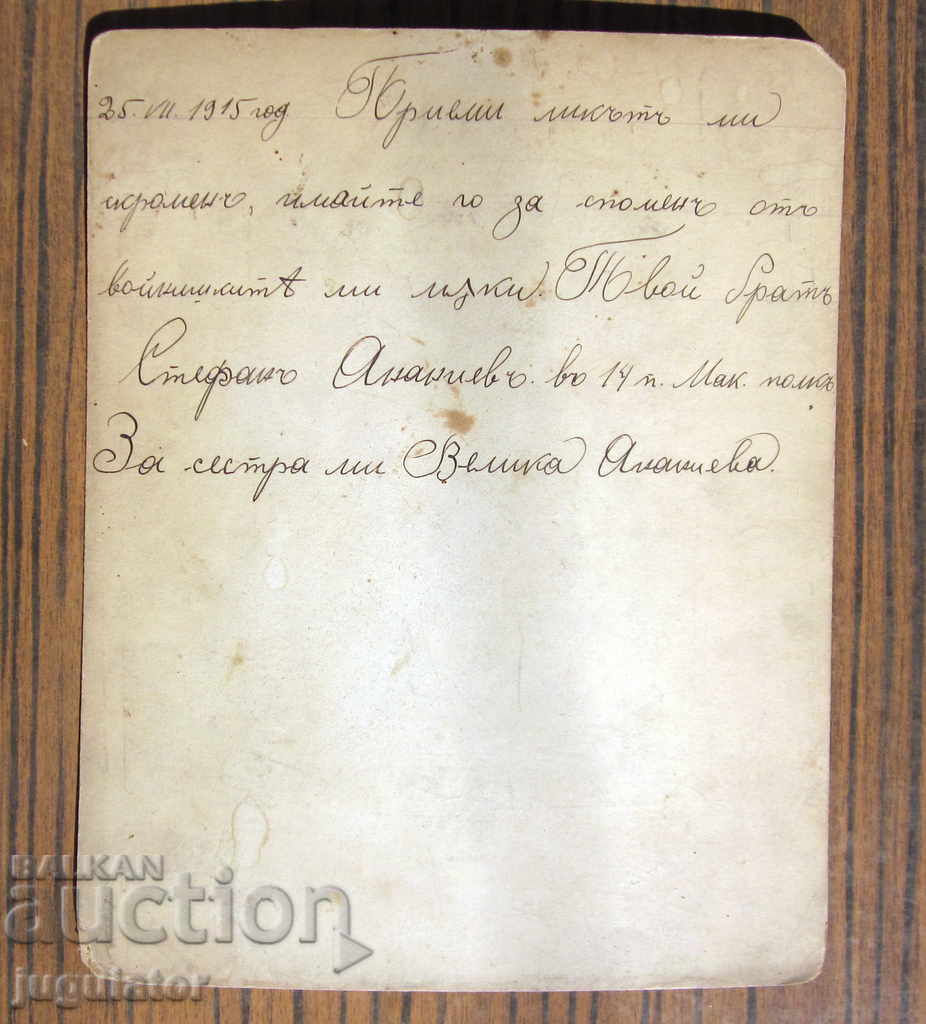 25. VII. 1915 год Приеми ликътъ ми
скроменъ, имайте го за споменъ отъ
войнишкитѣ ми мѫки. Твой братъ
Стефанъ Ананиевъ. въ 14 п. Мак. полкъ
За сестра ми Велика Ананиева.
BALKAN
auction
jugulator